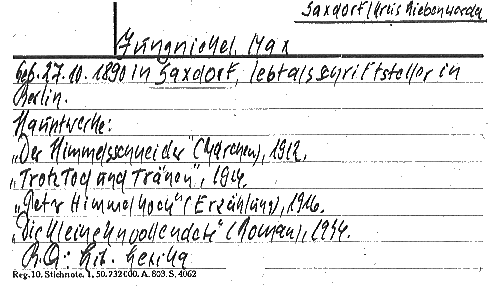 Saxdorf/Kreis Liebenwerda
Jungnickel, Max
Geb. 27.10.1890 in Saxdorf, lebt als Schriftsteller in
Berlin.
Hauptwerke:
„Der Himmelsschneider" (Märchen), 1912.
„Trotz Tod und Tränen", 1914.
„Peter Himmelhoch" (Erzählung), 1916.
(Roman), 1934.
Lit. Lexika
Reg. 10. Stichnote. 1, 50. 732 000. A. 803. S. 4062